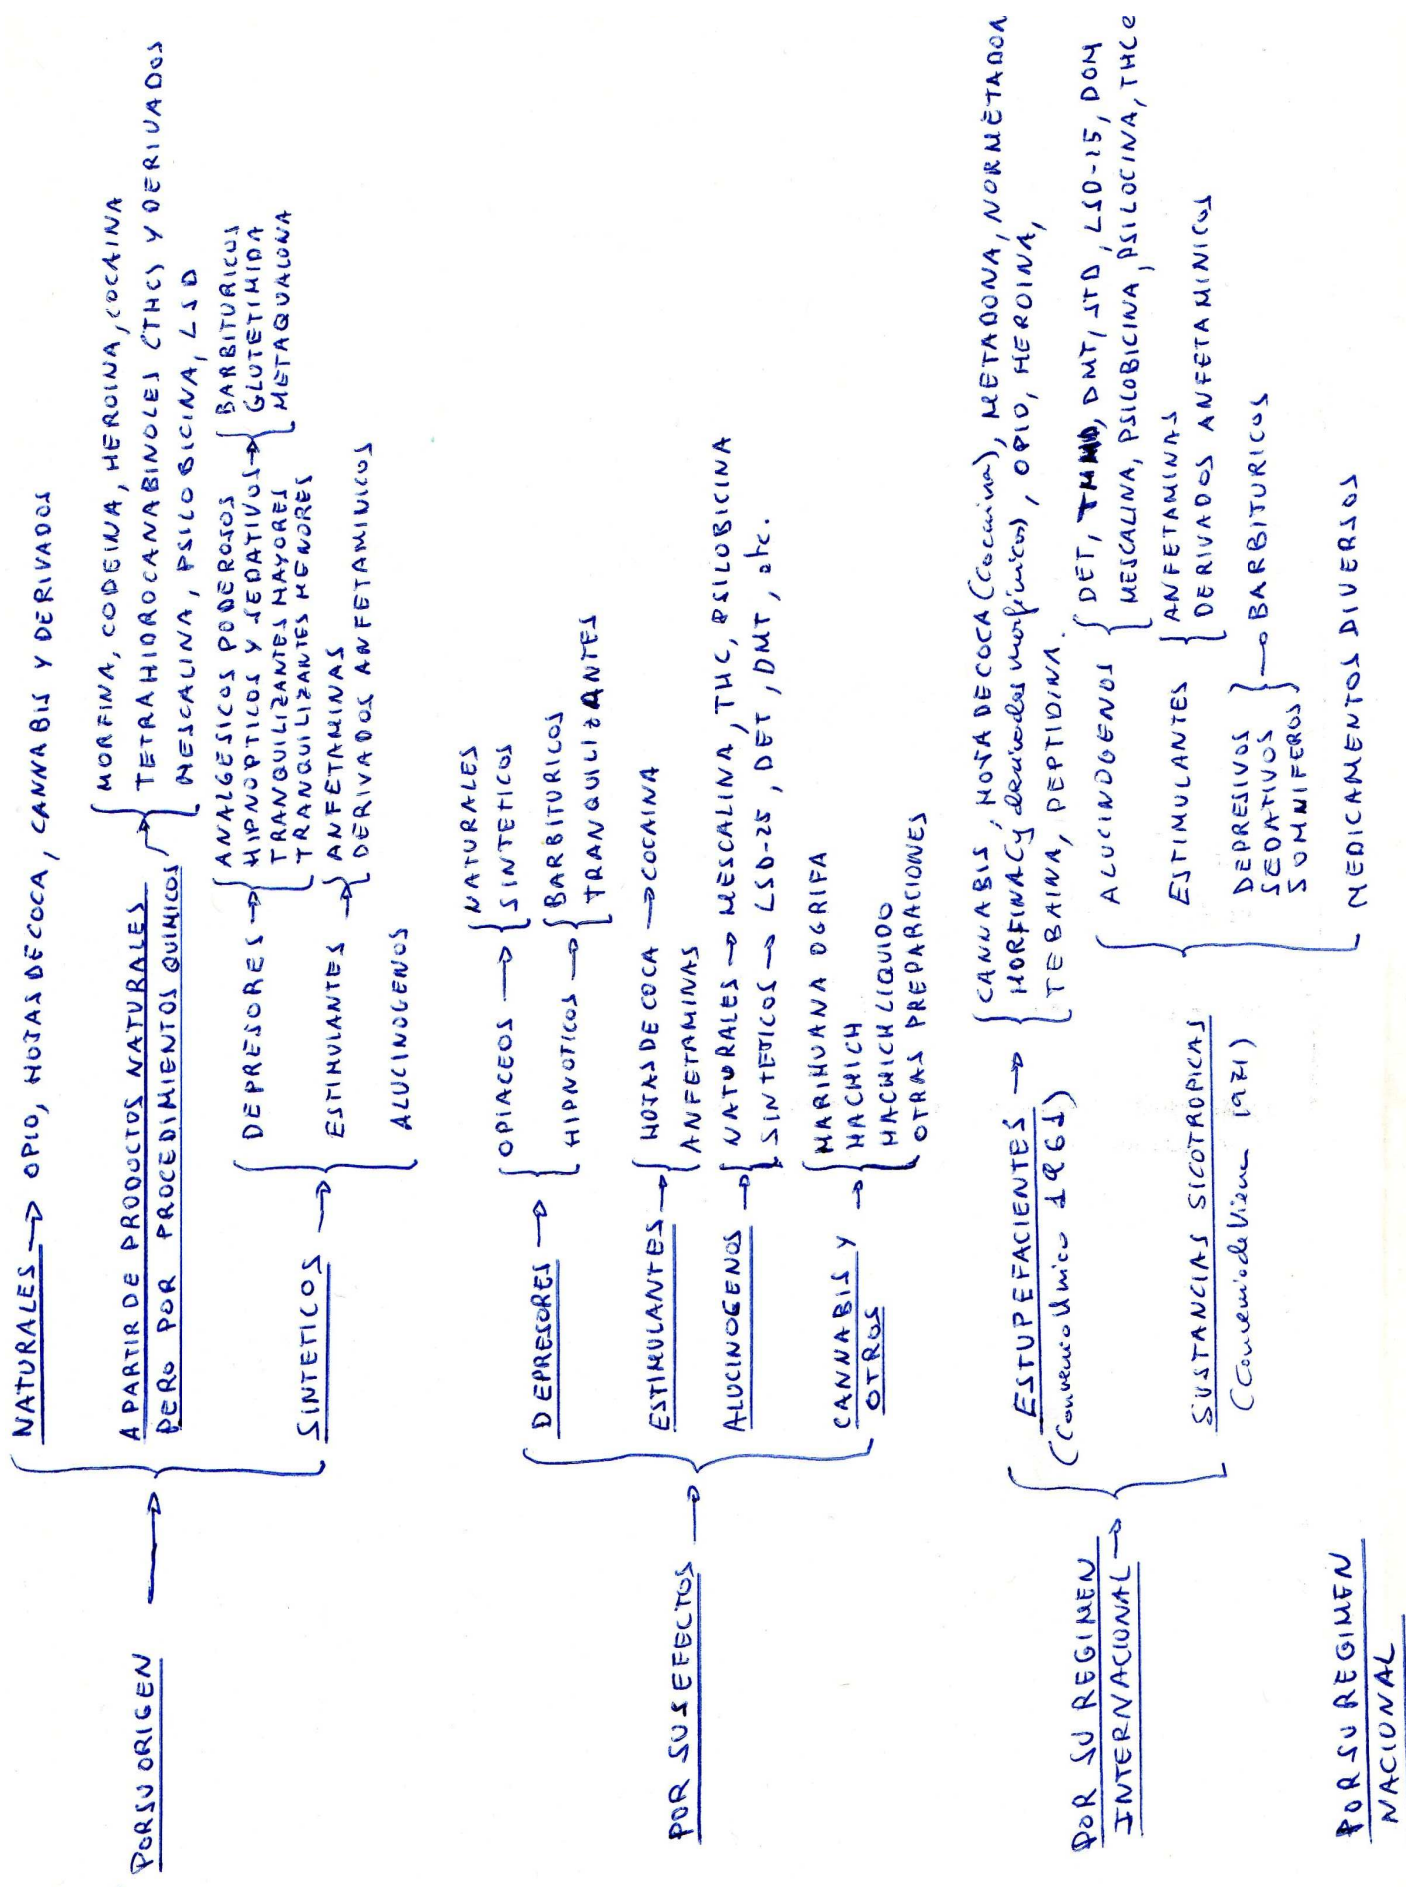 POR SU ORIGEN
NATURALES → OPIO, HOJAS DE COCA, CANNABIS Y DERIVADOS
A PARTIR DE PRODUCTOS NATURALES
PERO POR PROCEDIMIENTOS QUIMICOS
MORFINA, CODEINA, HEROINA, COCAINA
TETRAHIDROCANABINOLES (THC) Y DERIVADOS
MESCALINA, PSILOBICINA, LSD
SINTETICOS →
DEPRESORES →
ANALGESICOS PODEROSOS
HIPNOPTICOS Y SEDATIVOS →
TRANQUILIZANTES MAYORES
TRANQUILIZANTES MENORES
BARBITURICOS
GLUTETIMIDA
METAQUALONA
ESTIMULANTES →
ANFETAMINAS
DERIVADOS ANFETAMINICOS
ALUCINOGENOS
POR SUS EFECTOS →
DEPRESORES →
OPIACEOS →
NATURALES
SINTETICOS
HIPNOTICOS →
BARBITURICOS
TRANQUILIZANTES
ESTIMULANTES →
HOJAS DE COCA → COCAINA
ANFETAMINAS
ALUCINOGENOS →
NATURALES → MESCALINA, THC, PSILOBICINA
SINTETICOS → LSD-25, DET, DMT, etc.
CANNABIS Y →
OTROS
MARIHUANA O GRIFA
HACHICH
HACHICH LIQUIDO
OTRAS PREPARACIONES
POR SU REGIMEN
INTERNACIONAL →
ESTUPEFACIENTES →
(Convenio Unico 1961)
CANNABIS, HOJA DE COCA (Cocaina), METADONA, NORMETADON
MORFINA (y derivados morfinicos), OPIO, HEROINA,
TEBAINA, PEPTIDINA.
SUSTANCIAS SICOTROPICAS
(Convenio de Viena 1971)
ALUCINOGENOS
DET, DMT, STP, LSD-25, DOM
MESCALINA, PSILOBICINA, PSILOCINA, THC
ESTIMULANTES
ANFETAMINAS
DERIVADOS ANFETAMINICOS
DEPRESIVOS
SEDATIVOS
SOMNIFEROS
→ BARBITURICOS
MEDICAMENTOS DIVERSOS
POR SU REGIMEN
NACIONAL